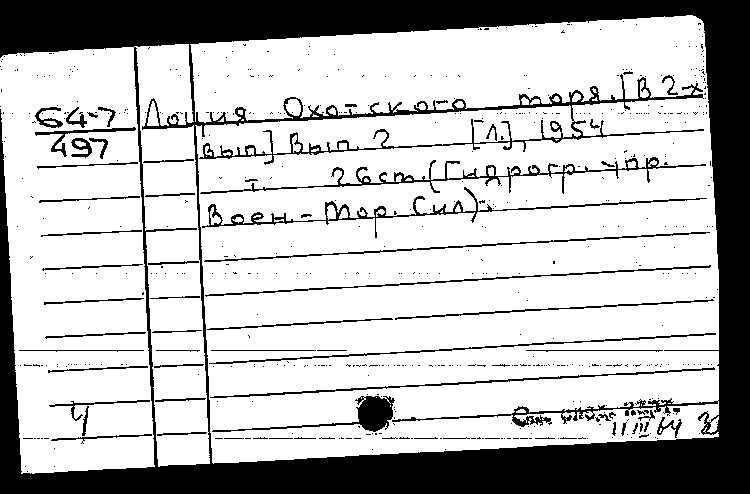 64-7
497
Лоция Охотского моря. [В 2-х
вып.] Вып. 2 [Л.], 1954
т. 26 см. (Гидрогр. упр.
Воен.-Мор. Сил).
4
11 III 64